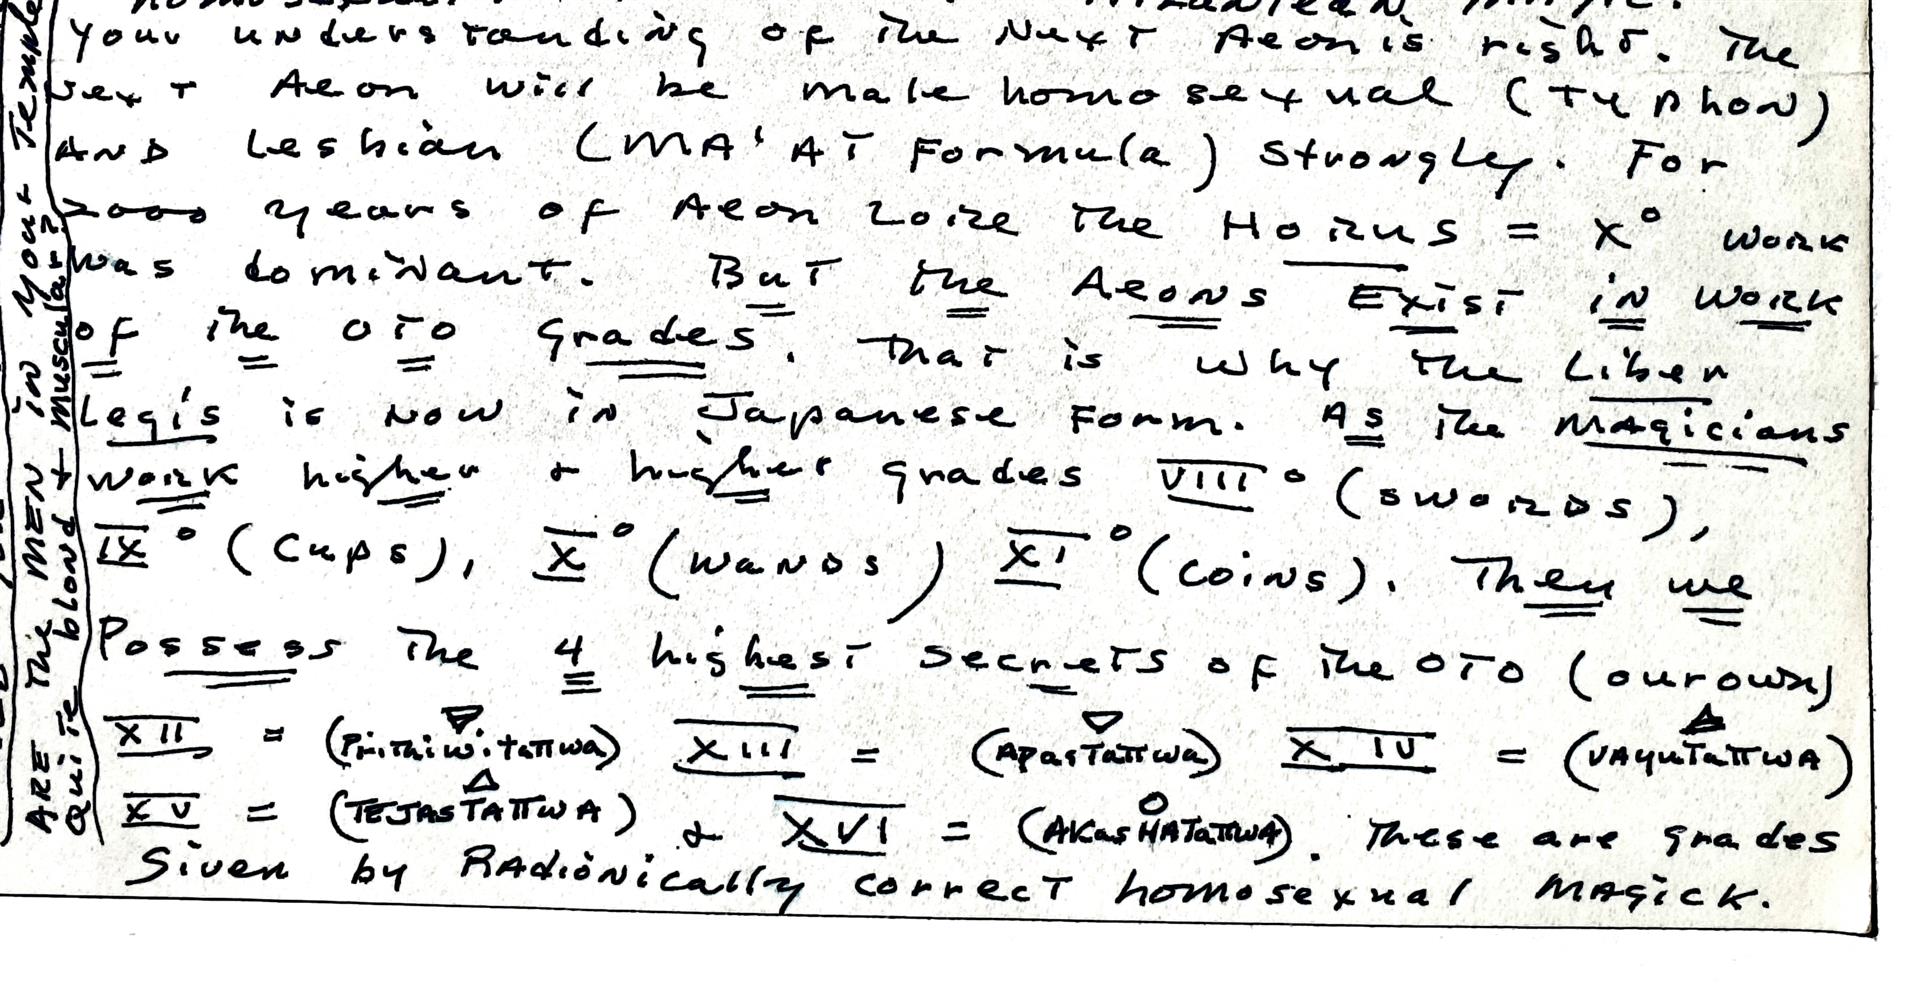 your understanding of the Next Aeon is right. The
Next Aeon will be male homosexual (Typhon)
AND Lesbian (MA'AT Formula) strongly. For
2000 years of Aeon Zoire the Horus = X° work
was dominant. But the Aeons Exist in work
of the OTO grades. That is why the Liber
Legis is now in Japanese Form. As the Magicians
work higher + higher grades VIII° (SWORDS),
IX° (Cups), X° (WANDS) XI° (COINS). Then we
Possess the 4 highest secrets of the OTO (our own)
XII = (PrithiwiTattwa) XIII = (ApasTattwa) XIV = (VAyuTaTTWA)
XV = (TEJASTATTWA) + XVI = (AKasHATaTTWA). These are grades
Given by RADionically correct homosexual MAGICK.
ARE THE MEN in your Temple
Quite blond + muscular?